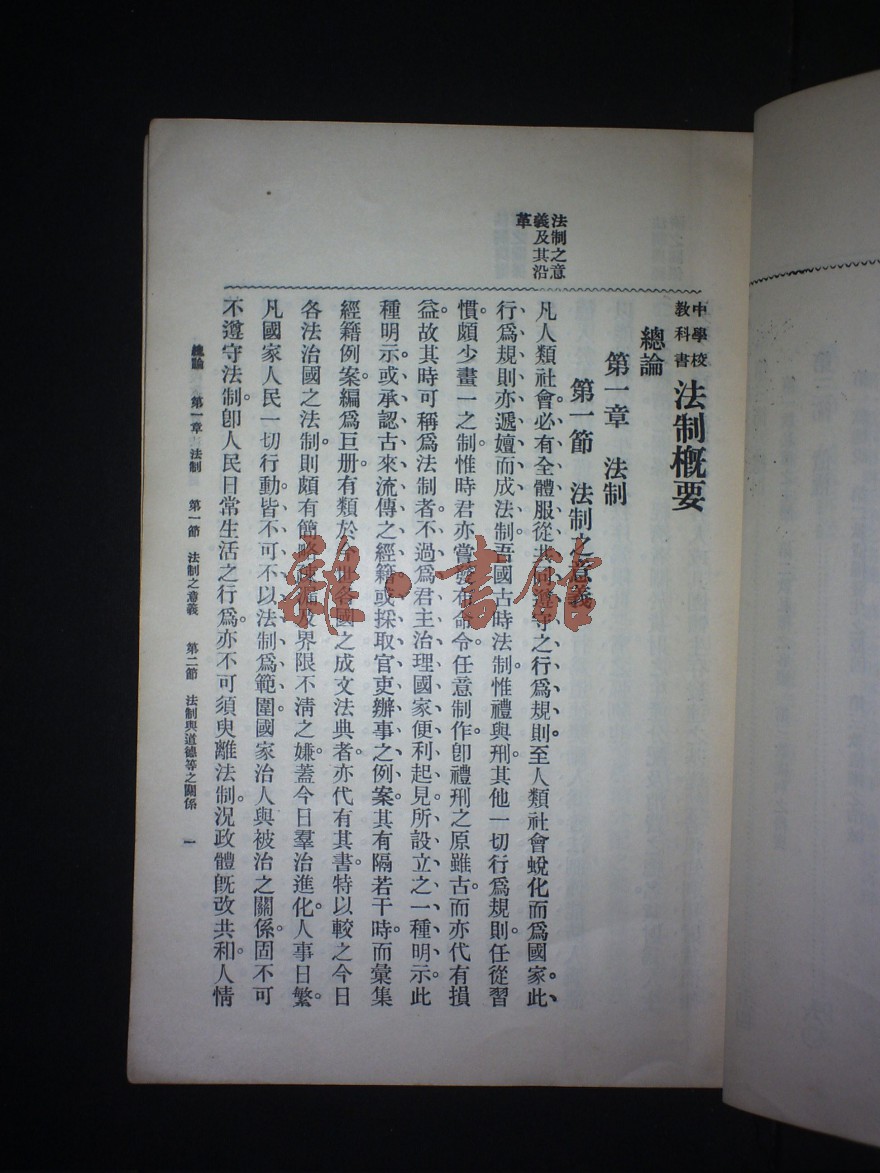 中學校
教科書
法制槪要
總論
第一章　法制
第一節　法制之意義
法制之意
義及其沿
革
凡人類社會必有全體服從共同遵守之行爲規則。至人類社會蛻化而爲國家、此、
行爲規則亦遞嬗而成法制。吾國古時法制惟禮與刑其他一切行爲規則任從習
慣、頗少畫一之制惟時君亦嘗發布命令任意制作。卽禮刑之原雖古。而亦代有損
益。故其時可稱爲法制者。不過爲君主治理國家便利起見所設立之一種明示。此
種明示。或承認古來流傳之經籍。或採取官吏辦事之例案。其有隔若干時。而彙集
經籍例案。編爲巨册。有類於今世各國之成文法典者。亦代有其書。特以較之今日
各法治國之法制。則頗有簡略疎漏及界限不淸之嫌。蓋今日羣治進化。人事日繁。
凡國家人民一切行動。皆不可不以法制爲範圍。國家治人與被治之關係。固不可
不遵守法制。卽人民日常生活之行爲。亦不可須臾離法制。況政體旣改共和。人情
總論　第一章　法制　第一節　法制之意義　第二節　法制與道德等之關係　一
雜·書館